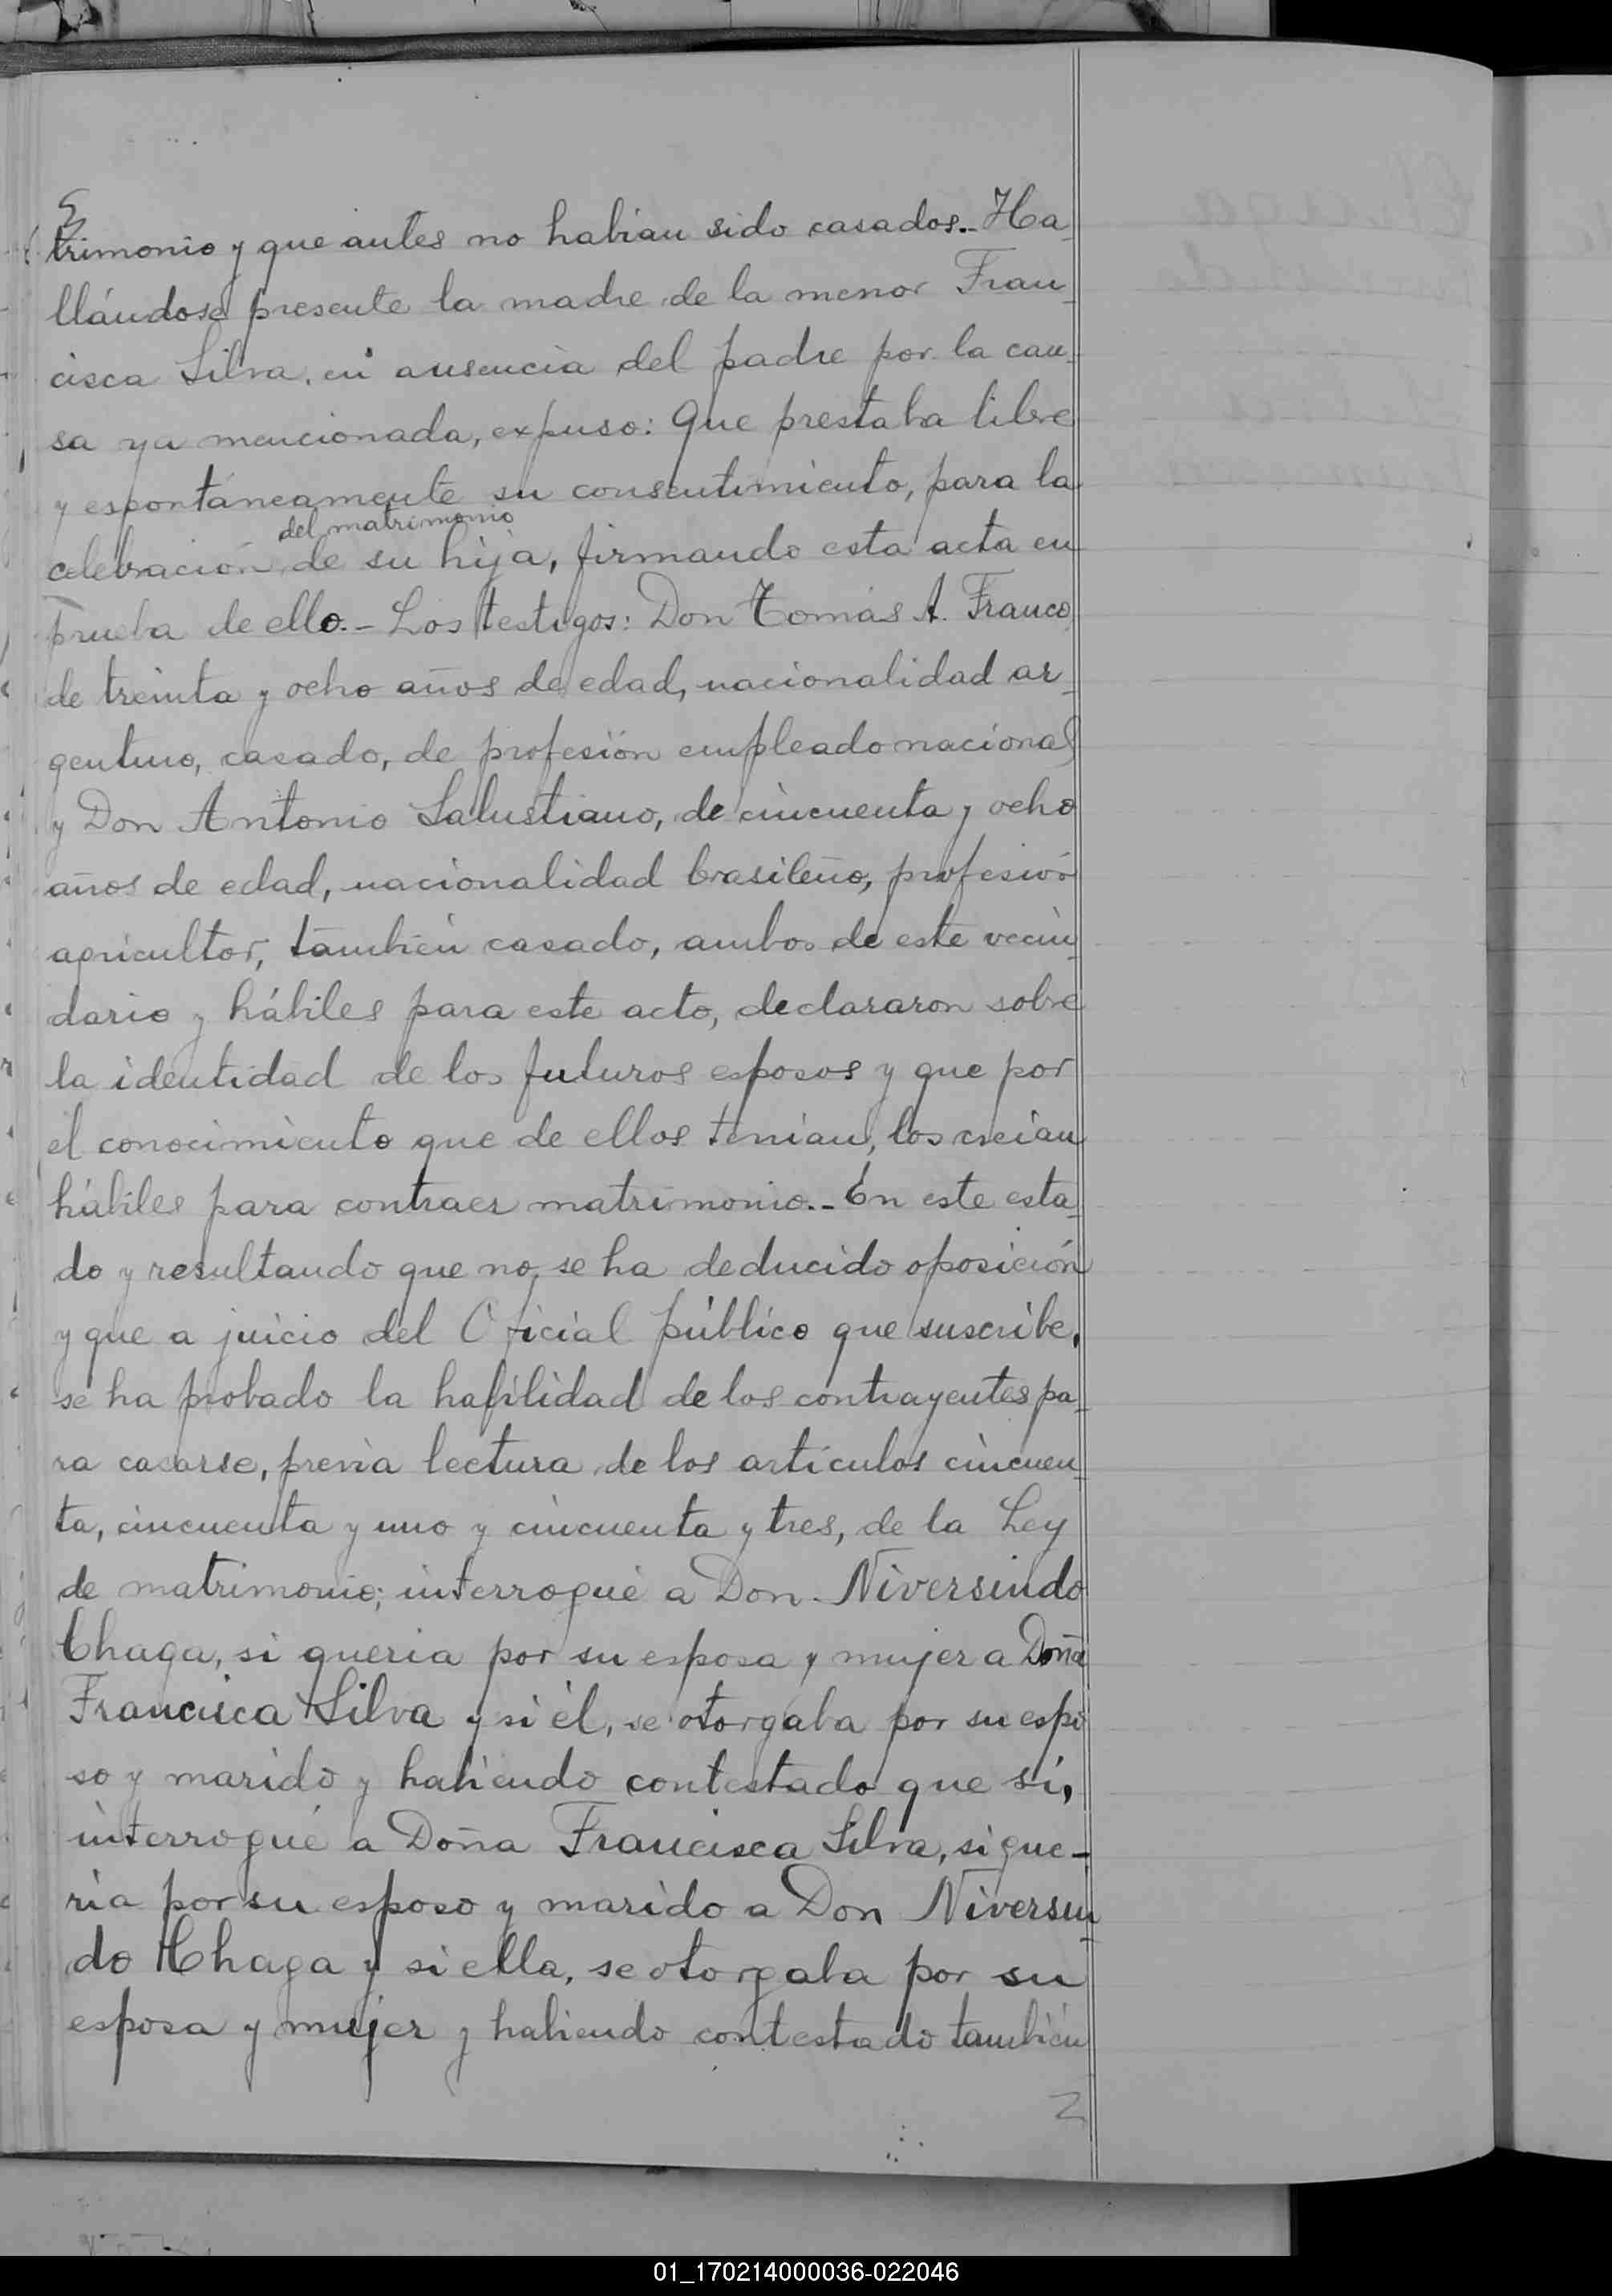 trimonio y que antes no habian sido casados.- Ha-
llándose presente la madre de la menor Fran-
cisca Silva, en ausencia del padre por la cau-
sa ya mencionada, expuso: Que prestaba libre
y espontáneamente su consentimiento, para la
del matrimonio
celebración de su hija, firmando esta acta en
prueba de ello.- Los testigos: Don Tomás A. Franco
de treinta y ocho años de edad, nacionalidad ar-
gentino, casado, de profesión empleado nacional
y Don Antonio Salustiano, de cincuenta y ocho
años de edad, nacionalidad brasileño, profesión
agricultor, también casado, ambos de este vecin-
dario y hábiles para este acto, declararon sobre
la identidad de los futuros esposos y que por
el conocimiento que de ellos tenian, los creian
hábiles para contraer matrimonio.- En este esta-
do y resultando que no se ha deducido oposición
y que a juicio del Oficial público que suscribe,
se ha probado la habilidad de los contrayentes pa-
ra casarse, previa lectura de los artículos cincuen-
ta, cincuenta y uno y cincuenta y tres, de la Ley
de matrimonio; interrogué a Don Niversindo
Chaga, si queria por su esposa y mujer a Doña
Francisca Silva y si él, se otorgaba por su espo
so y marido y habiendo contestado que sí,
interrogué a Doña Francisca Silva, si que-
ria por su esposo y marido a Don Niversin-
do Chaga y si ella, se otorgaba por su
esposa y mujer y habiendo contestado también
01_170214000036-022046